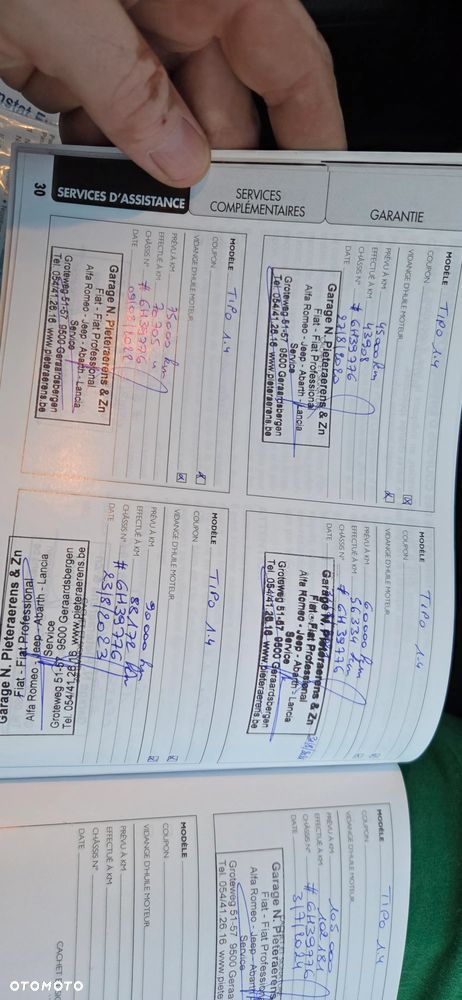 30
SERVICES D'ASSISTANCE
SERVICES
COMPLÉMENTAIRES
GARANTIE
MODÈLE TIPO 1.4
COUPON
VIDANGE D'HUILE MOTEUR
PRÉVU À KM 45000 km
EFFECTUÉ À KM
CHÂSSIS N° # 6H39776
DATE 27/8/2020
Garage N. Pieteraerens & Zn
Fiat - Fiat Professional
Alfa Romeo - Jeep - Abarth - Lancia
Service
Groteweg 51-57 9500 Geraardsbergen
Tel. 054/41.26.16 www.pieteraerens.be
MODÈLE TIPO 1.4
COUPON
VIDANGE D'HUILE MOTEUR
PRÉVU À KM 60000 km
EFFECTUÉ À KM 56334 km
CHÂSSIS N° # 6H39776
Garage N. Pieteraerens & Zn
Fiat - Fiat Professional
Alfa Romeo - Jeep - Abarth - Lancia
Service
Groteweg 51-57 9500 Geraardsbergen
Tel. 054/41.26.16 www.pieteraerens.be
MODÈLE TIPO 1.4
COUPON
VIDANGE D'HUILE MOTEUR
PRÉVU À KM 75000 km
EFFECTUÉ À KM 70705
CHÂSSIS N° # 6H39776
DATE
Garage N. Pieteraerens & Zn
Fiat - Fiat Professional
Alfa Romeo - Jeep - Abarth - Lancia
Service
Groteweg 51-57 9500 Geraardsbergen
Tel. 054/41.26.16 www.pieteraerens.be
MODÈLE TIPO 1.4
COUPON
VIDANGE D'HUILE MOTEUR
PRÉVU À KM 90000 km
EFFECTUÉ À KM 88172 km
CHÂSSIS N° # 6H39776
DATE 23/8/2023
Garage N. Pieteraerens & Zn
Fiat - Fiat Professional
Alfa Romeo - Jeep - Abarth - Lancia
Service
Groteweg 51-57 9500 Geraardsbergen
Tel. 054/41.26.16 www.pieteraerens.be
MODÈLE TIPO 1.4
COUPON
VIDANGE D'HUILE MOTEUR
PRÉVU À KM 105000
EFFECTUÉ À KM
CHÂSSIS N° # 6H39776
DATE 3/7/2024
Garage N. Pieteraerens
Fiat - Fiat Profession
Alfa Romeo - Jeep - Abarth
Service
Groteweg 51-57 9500 Geraa
Tel. 054/41.26.16 www.piete
MODÈLE
COUPON
VIDANGE D'HUILE MOTEUR
PRÉVU À KM
EFFECTUÉ À KM
CHÂSSIS N°
DATE
OTOMOTO